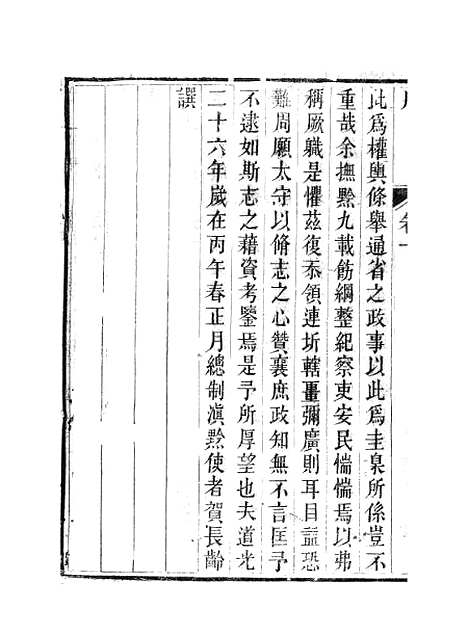 此爲權輿條舉通省之政事以此爲圭臬所係豈不
重哉余撫黔九載飭綱整紀察吏安民惴惴焉以弗
稱厥職是懼茲復忝領連圻轄畺彌廣則耳目益恐
難周願太守以脩志之心贊襄庶政知無不言匡予
不逮如斯志之藉資考鑒焉是予所厚望也夫道光
二十六年歲在丙午春正月總制滇黔使者賀長齡
譔